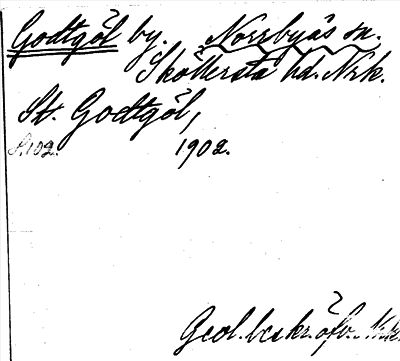 Godtgöl by. Norrbyås sn.
Sköllersta hd. Nrk.
St. Godtgöl,
S.102. 1902.
Geol. beskr. öfv. Nrk.